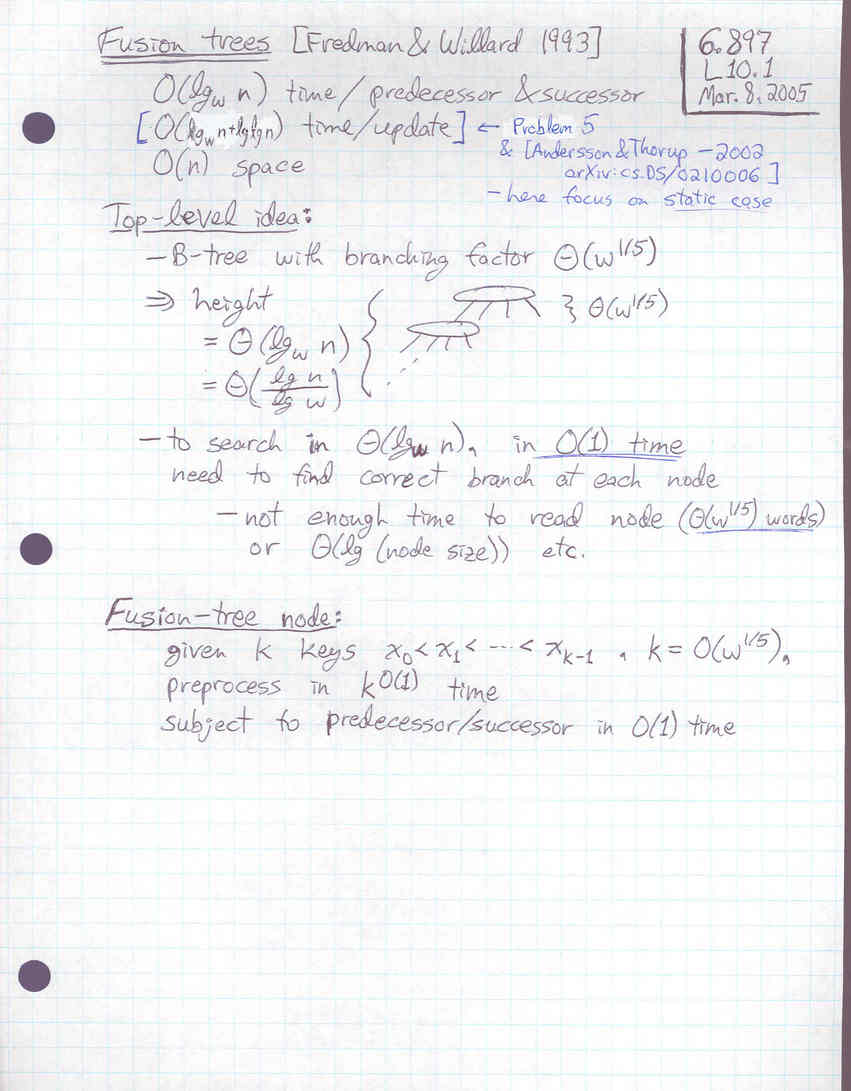 Fusion trees [Fredman & Willard 1993]
6.897
L10.1
Mar. 8, 2005
O(lg_w n) time/predecessor & successor
[O(lg_w n+lglgn) time/update] ← Problem 5
& [Andersson & Thorup – 2002
arXiv:cs.DS/0210006]
– here focus on static case
O(n) space
Top-level idea:
– B-tree with branching factor Θ(w^1/5)
⇒ height
} Θ(w^1/5)
= Θ(lg_w n)
= Θ(lg n / lg w)
– to search in Θ(lg_w n), in O(1) time
need to find correct branch at each node
– not enough time to read node (Θ(w^1/5) words)
or Θ(lg (node size)) etc.
Fusion-tree node:
given k keys x_0 < x_1 < ··· < x_k-1 , k = O(w^1/5),
preprocess in k^O(1) time
subject to predecessor/successor in O(1) time